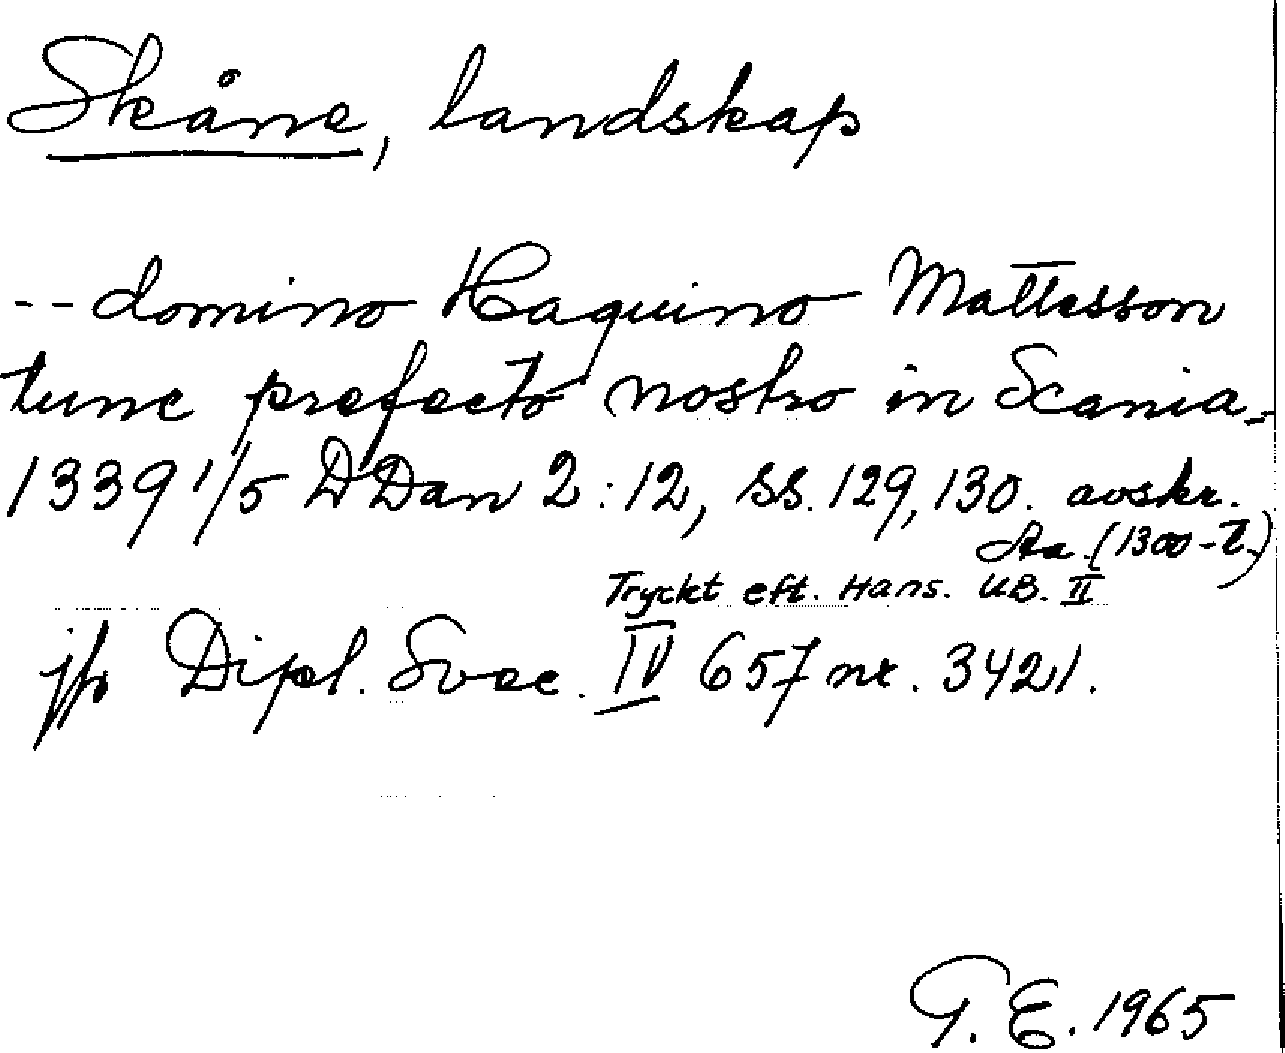 Skåne, landskap
-- domino Haquino Mattesson
tunc prefecto nostro in Scania -
1339 1/5 DDan 2:12, ss. 129, 130. avskr.
(1300-t.)
Tryckt eft. Hans. UB. II
jfr Dipl. Svec. IV 657 nr. 3421.
G. E. 1965